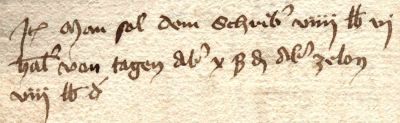 It Man sol dem Schrib' viiii lb vj
hal' von tagen ab' x ß d ab' zelon
viii lb d